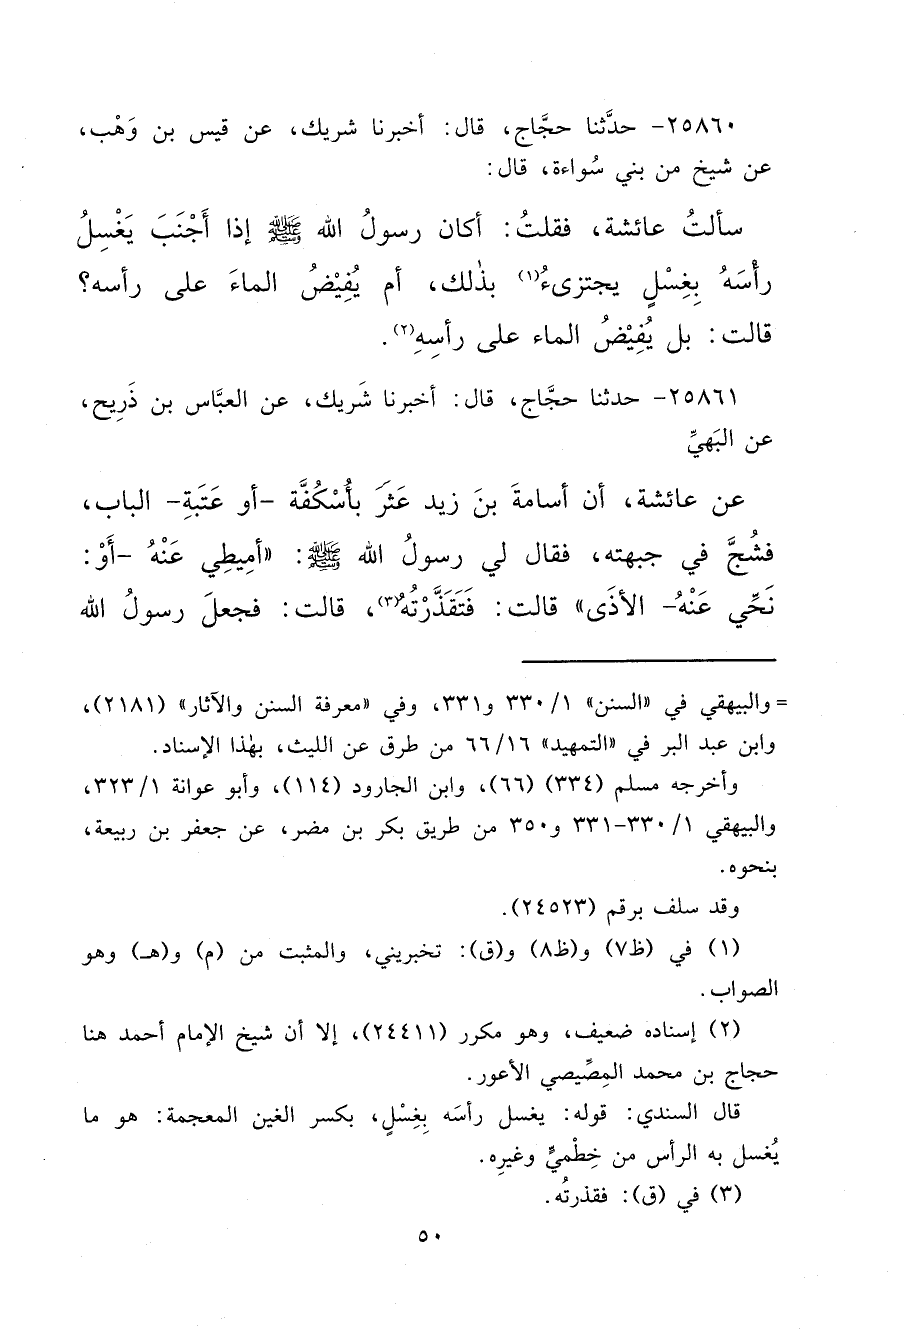 ٢٥٨٦٠- حدَّثنا حجَّاج، قال: أخبرنا شريك، عن قيس بن وَهْب،
عن شيخ من بني سُواءة، قال:
سألتُ عائشة، فقلتُ: أكان رسولُ الله ﷺ إذا أَجْنَبَ يَغْسِلُ
رأْسَهُ بِغِسْلٍ يجتزىءُ(١) بذٰلك، أم يُفِيْضُ الماءَ على رأسه؟
قالت: بل يُفِيْضُ الماء على رأسِهِ(٢).
٢٥٨٦١- حدثنا حجَّاج، قال: أخبرنا شَريك، عن العبَّاس بن ذَرِيح،
عن البَهيِّ
عن عائشة، أن أسامةَ بنَ زيد عَثَرَ بأُسْكُفَّة -أو عَتَبَةِ- الباب،
فشُجَّ في جبهته، فقال لي رسولُ الله ﷺ: «أمِيطِي عَنْهُ -أَوْ:
نَحِّي عَنْهُ- الأذَى» قالت: فَتَقَذَّرْتُهُ(٣)، قالت: فجعلَ رسولُ الله
= والبيهقي في «السنن» ٣٣٠/١ و٣٣١، وفي «معرفة السنن والآثار» (٢١٨١)،
وابن عبد البر في «التمهيد» ٦٦/١٦ من طرق عن الليث، بهٰذا الإسناد.
وأخرجه مسلم (٣٣٤) (٦٦)، وابن الجارود (١١٤)، وأبو عوانة ٣٢٣/١،
والبيهقي ٣٣٠/١-٣٣١ و٣٥٠ من طريق بكر بن مضر، عن جعفر بن ربيعة،
بنحوه.
وقد سلف برقم (٢٤٥٢٣).
(١) في (ظ٧) و(ظ٨) و(ق): تخبريني، والمثبت من (م) و(هـ) وهو
الصواب.
(٢) إسناده ضعيف، وهو مكرر (٢٤٤١١)، إلا أن شيخ الإمام أحمد هنا
حجاج بن محمد المِصِّيصي الأعور.
قال السندي: قوله: يغسل رأسَه بِغِسْلٍ، بكسر الغين المعجمة: هو ما
يُغسل به الرأس من خِطْميٍّ وغيرِه.
(٣) في (ق): فقذرتُه.
٥٠